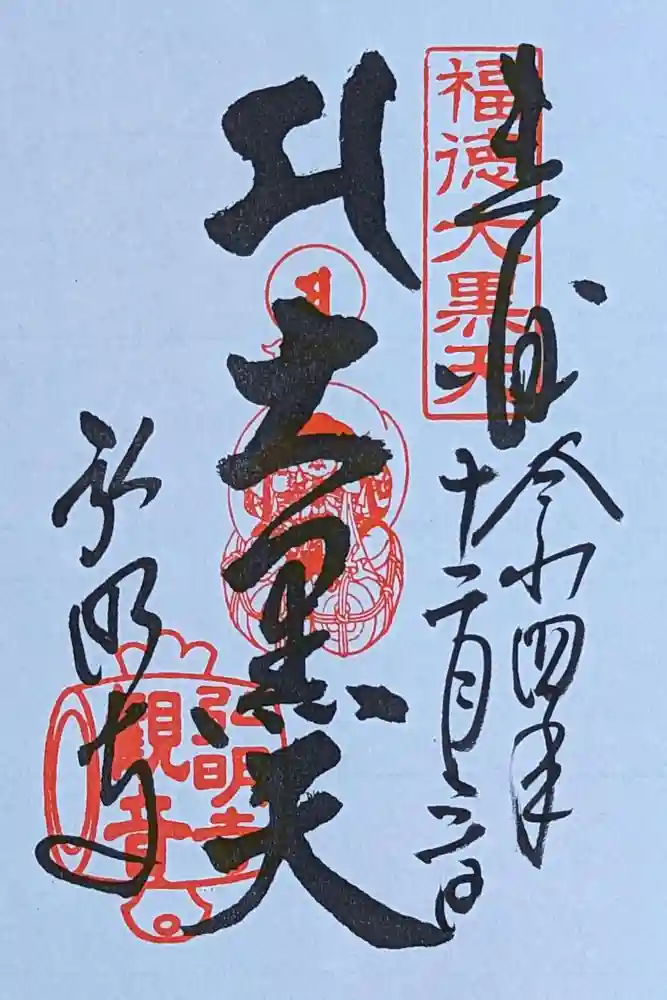 奉拝
福徳大黒天
令和四年
十二月三日
大黒天
弘明寺
弘明寺
觀音